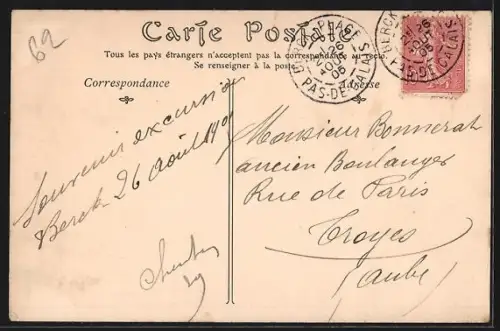 62
Carte Postale
Tous les pays étrangers n'acceptent pas la correspondance au recto
Se renseigner à la poste.
Correspondance
Adresse
BERCK-PLAGE
26
AOUT
05
PAS-DE-CALAIS
BERCK
26
AOUT
05
PAS-DE-CALAIS
Souvenir excursion
Berck. 26 Août 190
Monsieur Bonnerat
ancien Boulanger
Rue de Paris
Troyes
(Aube)